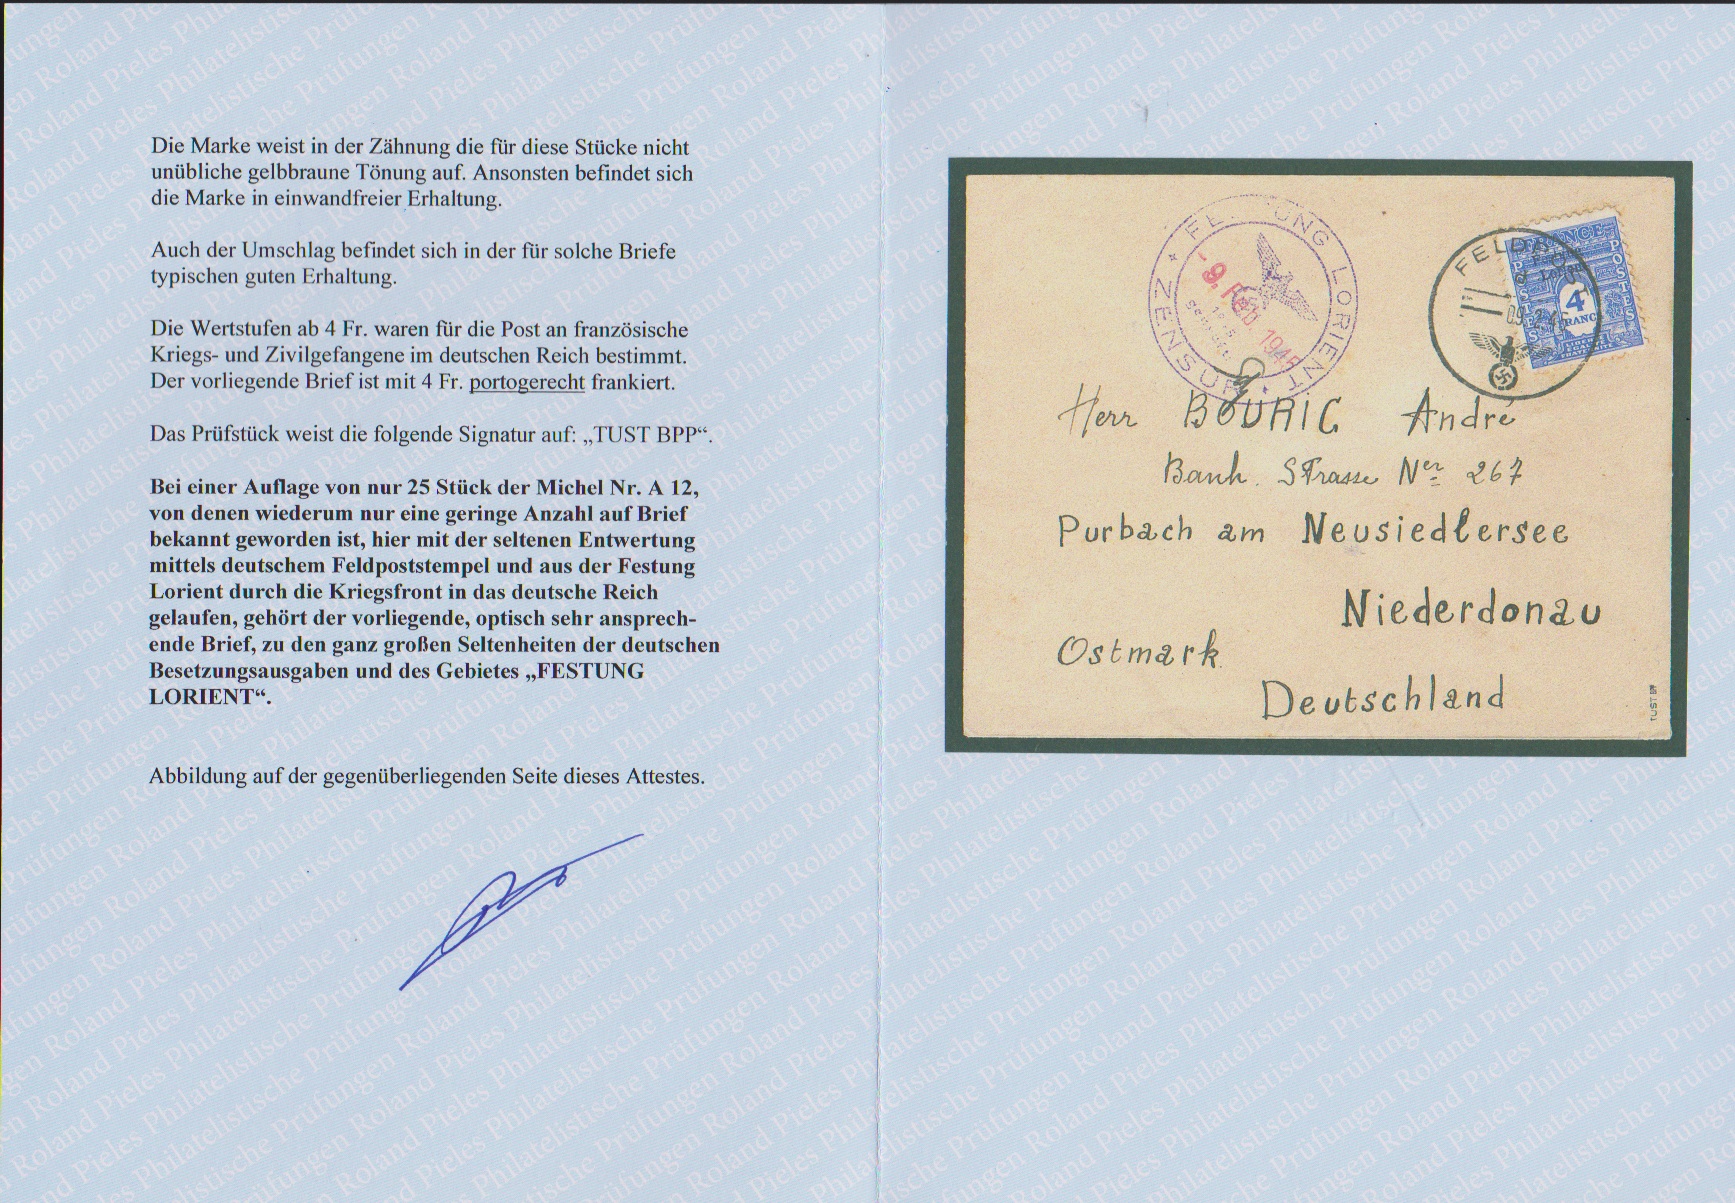 Die Marke weist in der Zähnung die für diese Stücke nicht
unübliche gelbbraune Tönung auf. Ansonsten befindet sich
die Marke in einwandfreier Erhaltung.
Auch der Umschlag befindet sich in der für solche Briefe
typischen guten Erhaltung.
Die Wertstufen ab 4 Fr. waren für die Post an französische
Kriegs- und Zivilgefangene im deutschen Reich bestimmt.
Der vorliegende Brief ist mit 4 Fr. portogerecht frankiert.
Das Prüfstück weist die folgende Signatur auf: „TUST BPP“.
Bei einer Auflage von nur 25 Stück der Michel Nr. A 12,
von denen wiederum nur eine geringe Anzahl auf Brief
bekannt geworden ist, hier mit der seltenen Entwertung
mittels deutschem Feldpoststempel und aus der Festung
Lorient durch die Kriegsfront in das deutsche Reich
gelaufen, gehört der vorliegende, optisch sehr ansprech-
ende Brief, zu den ganz großen Seltenheiten der deutschen
Besetzungsausgaben und des Gebietes „FESTUNG
LORIENT“.
Abbildung auf der gegenüberliegenden Seite dieses Attestes.
ZENSUR FESTUNG LORIENT
- 9. Feb 1945
FELDPOST
FRANCE
POSTES
POSTES
4
FRANCS
LIBERTE
EGALITE
FRATERNITE
Herr BOURIC André
Banh. STrasse Ner 267
Purbach am Neusiedlersee
Niederdonau
Ostmark
Deutschland
TUST BPP
Roland Pieles Philatelistische Prüfungen